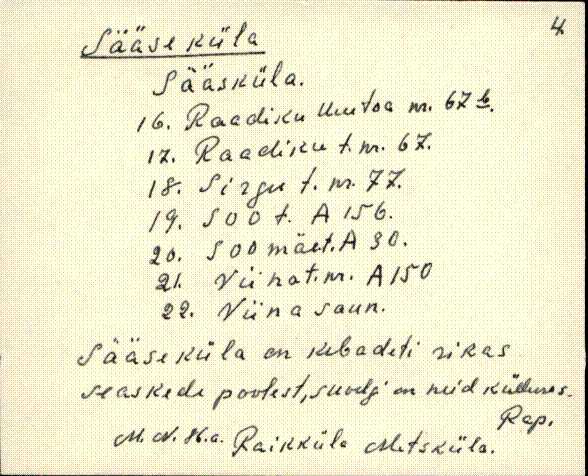 4.
Sääse küla
Sääsküla.
16. Raadiku Uuetoa nr. 67 b.
17. Raadiku t. nr. 67.
18. Sirgu t. nr. 77.
19. Soo t. A 156.
20. Soomäe t. A 30.
21. Viina t. nr. A 150
22. Viina saun.
Sääse küla on kebadeti rikas
seaskede poolest, suvelgi on neid külluses.
Rap.
Raikküla Metsküla.